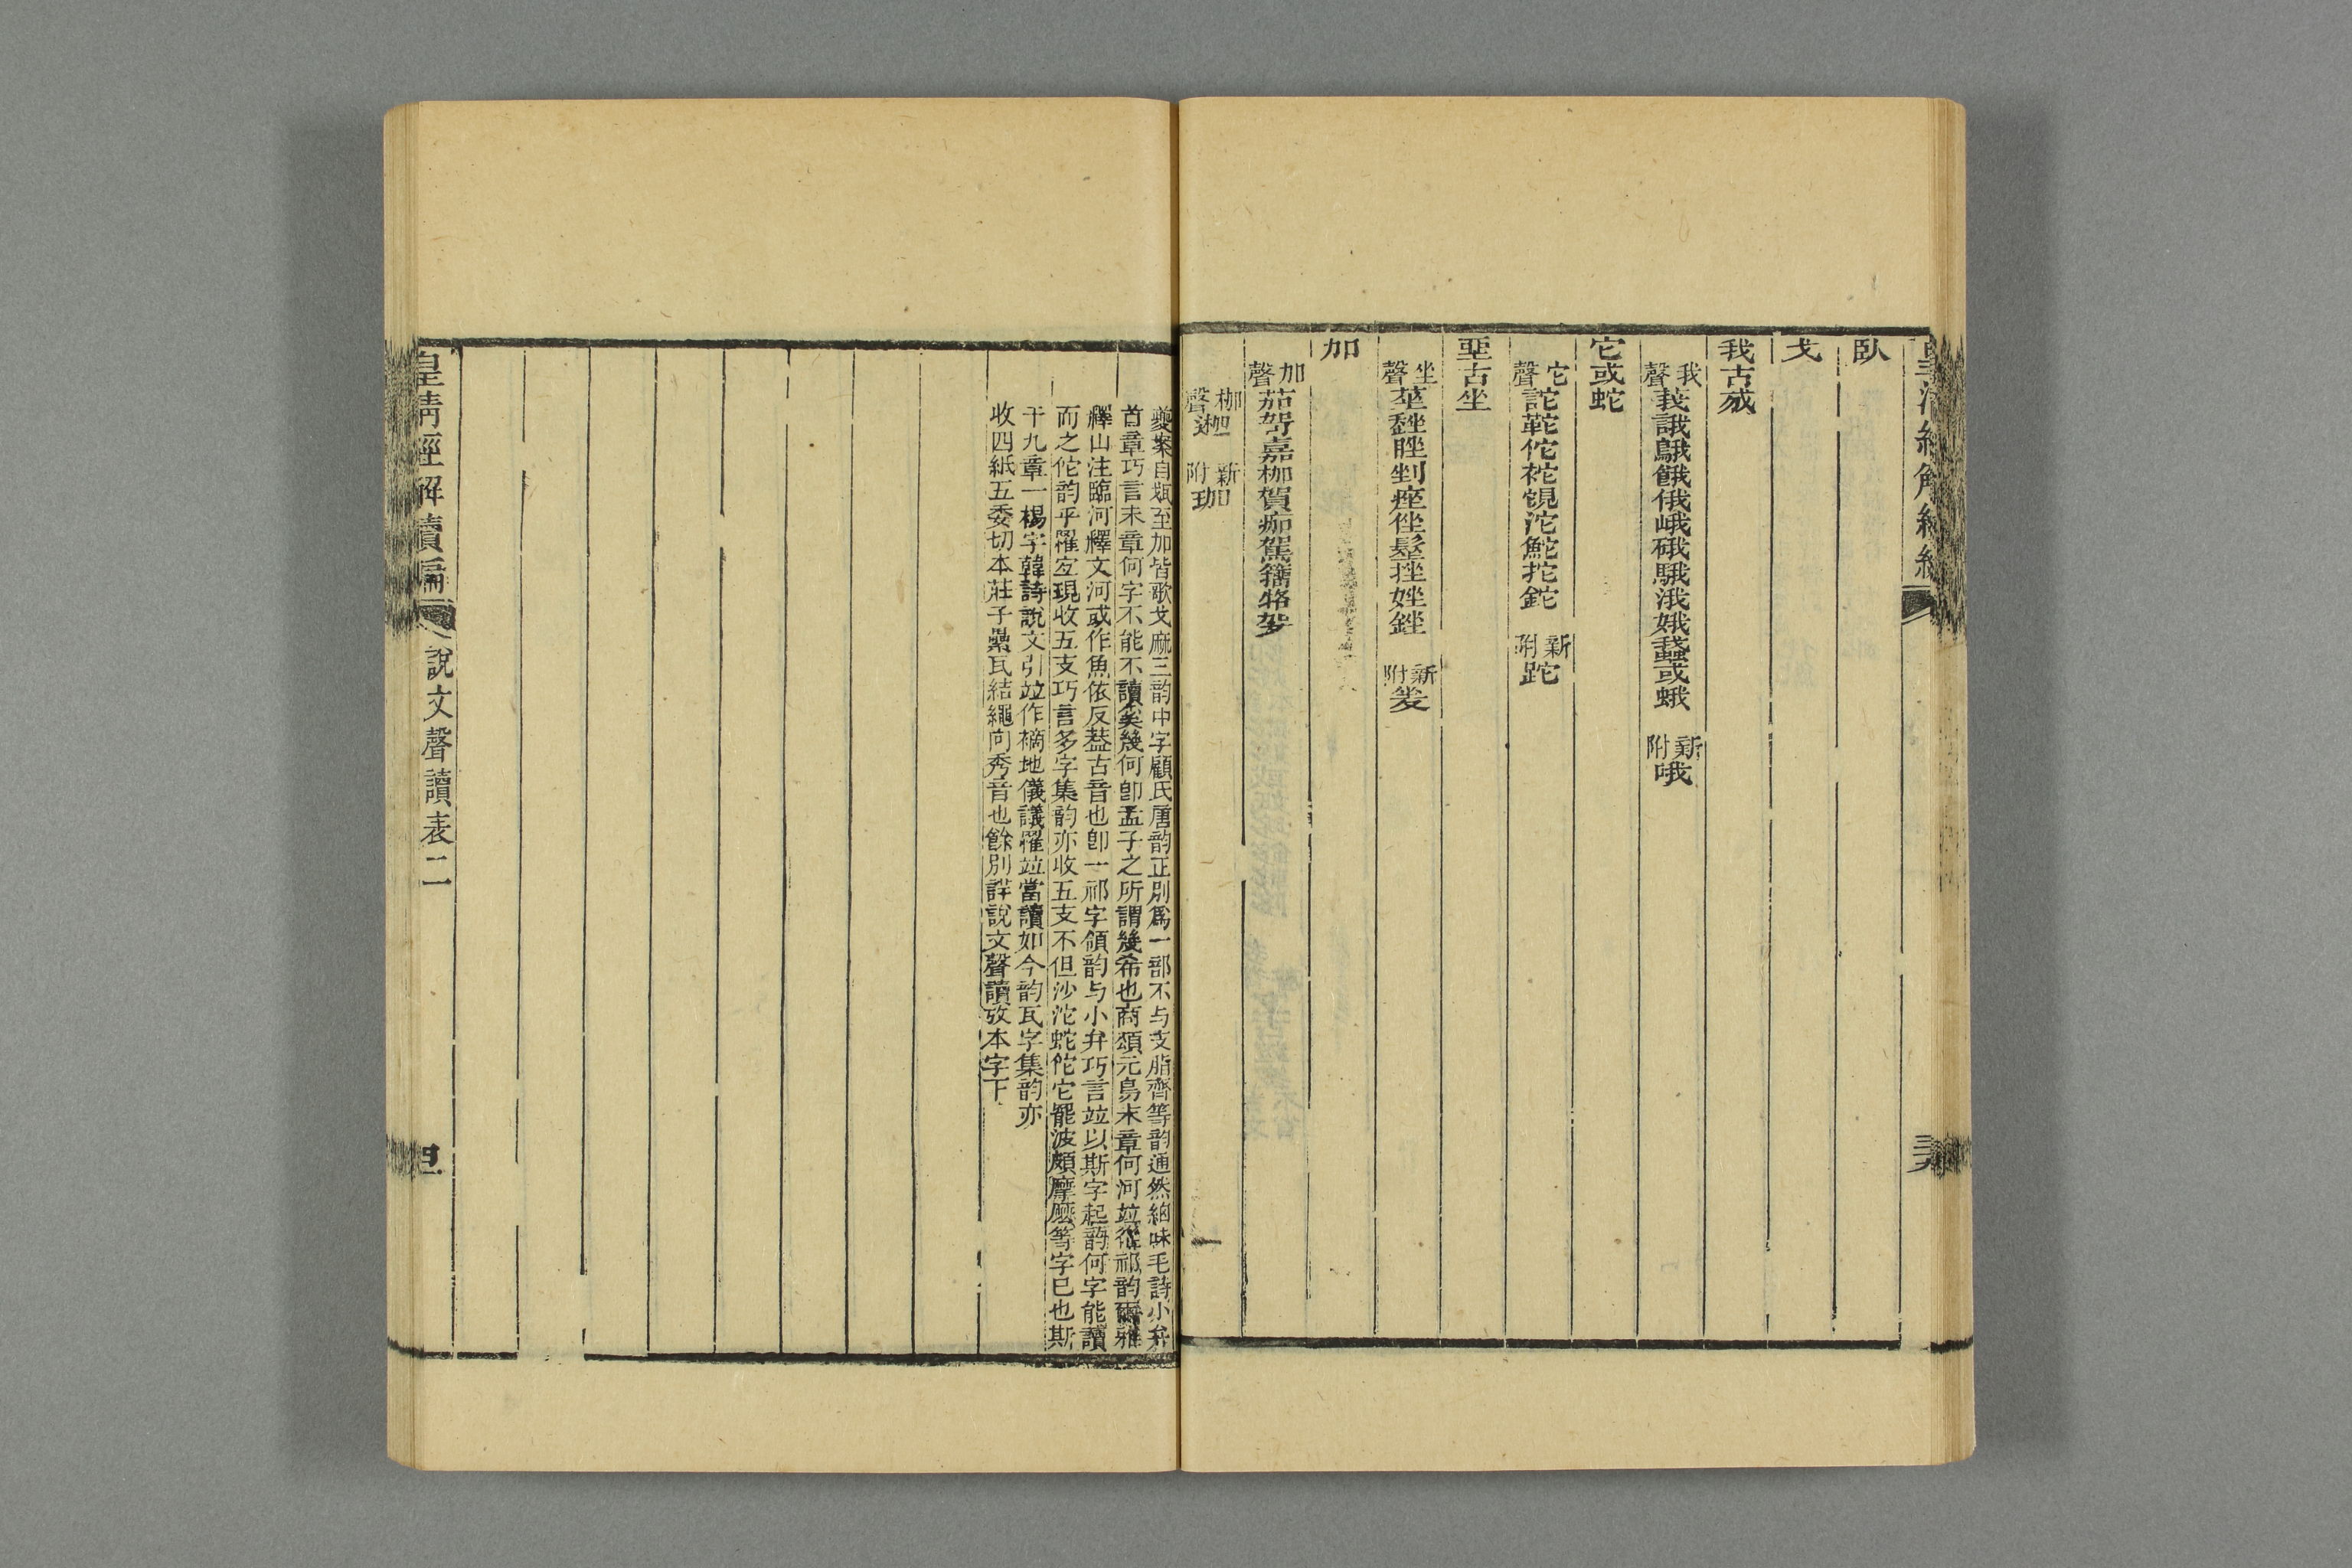 臥
戈
我古𢦠
我聲莪誐鵝餓俄峨硪騀涐娥蟊或蛾 新附哦
它或蛇
它聲詑鞁佗袉沱鮀拕鉈 新附跎
坐古坐
坐聲莝睉剉痤侳髽挫娷銼 新附
加
加聲茄哿嘉枷賀痂駕
枷聲迦 新附珈
夔案自嬴至加皆歌戈麻三韵中字顧氏唐韵正別爲一部不与支脂齊等韵通然細味毛詩小弁
首章巧言末章何字不能不讀奚幾何卽孟子之所謂幾希也商頌元鳥末章何河竝從祁韵爾雅
釋山注臨河釋文河或作魚依反葢古音也卽一祁字領韵与小弁巧言竝以斯字起韵何字能讀
而之佗韵乎罹宐現收五支巧言多字集韵亦收五支不但沙沱蛇佗它罷波頗摩麽等字巳也斯
干九章一裼字韓詩說文引竝作禘地儀議罹竝當讀如今韵瓦字集韵亦
收四紙五委切本莊子纍瓦結繩向秀音也餘別詳說文聲讀攷本字下
皇淸經解續編 說文聲讀表二